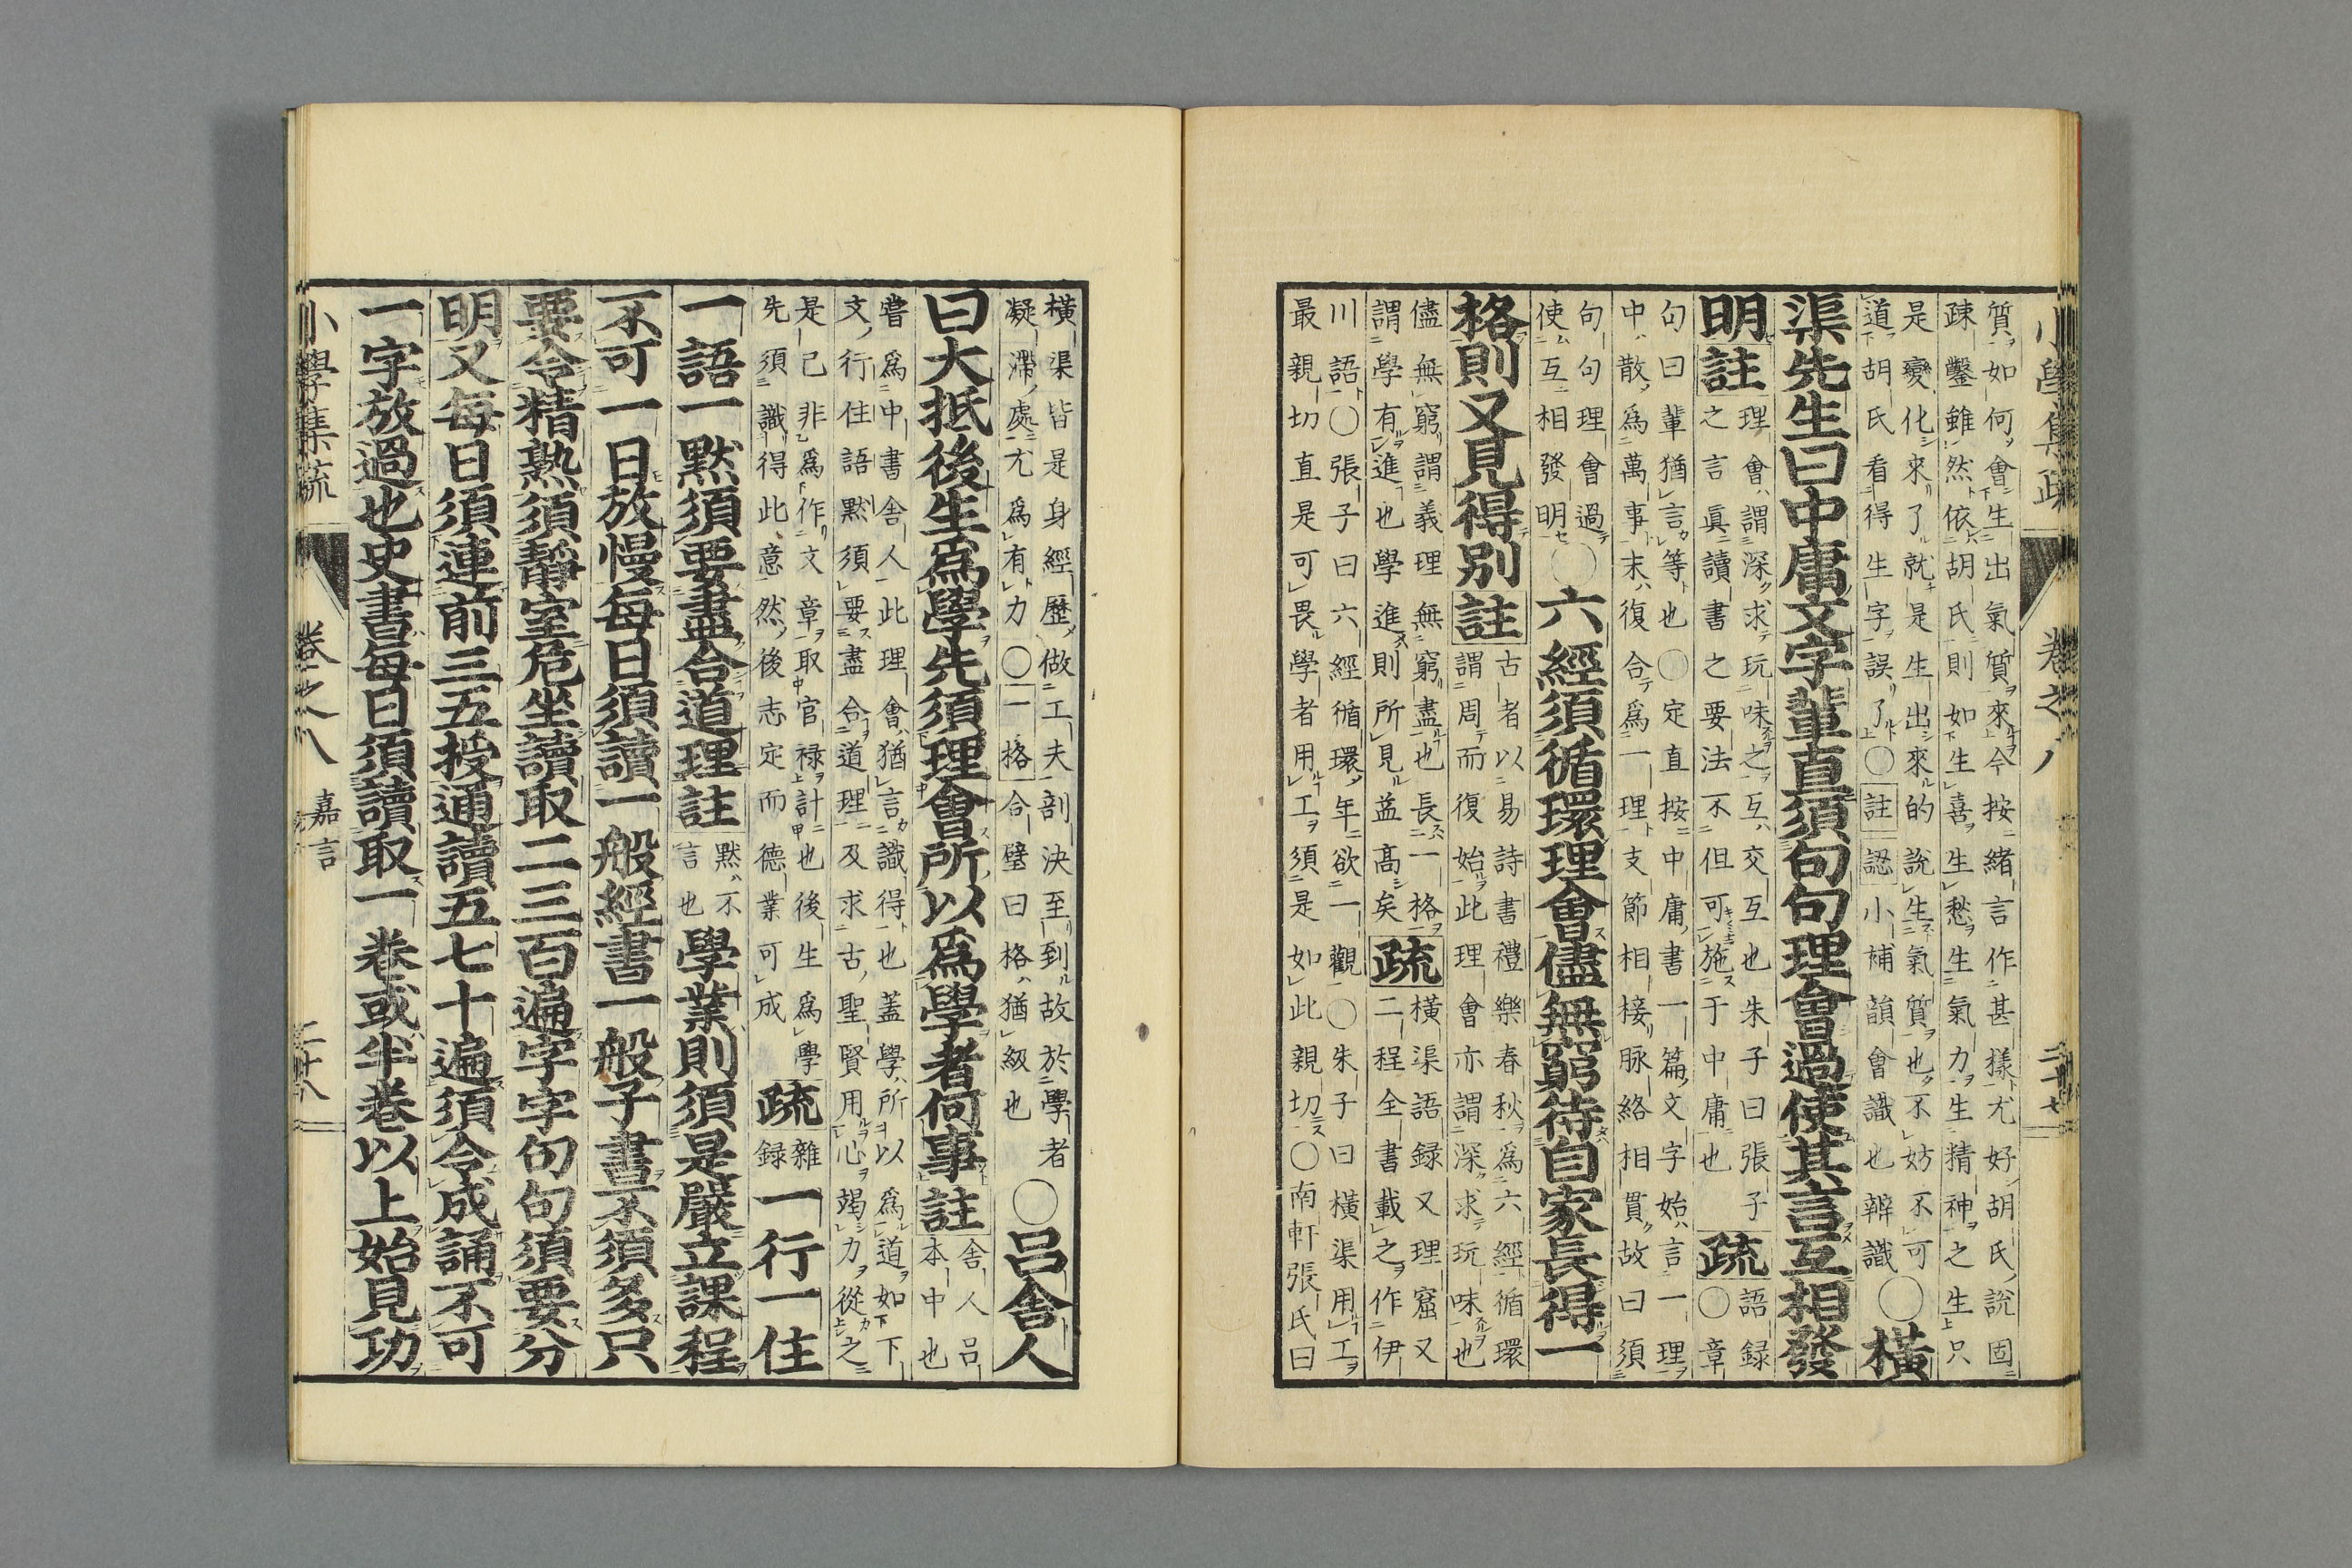 小學集疏 卷之八 二十七
質如何會生出氣質來今按緒言作甚樣尤好胡氏說固
疎鑿雖然依胡氏則如生喜生愁生氣力生精神之生只
是變化來了就是生出來的說生氣質也不妨不可
道胡氏看得生字誤了〇註認小補韻會識也辨識〇橫
渠先生曰中庸文字輩直須句句理會過使其言互相發
明註
理會謂深求玩味之互交互也朱子曰張子
之言眞讀書之要法不但可施于中庸也
疏
語録
〇章
句曰輩猶言等也〇定直按中庸書一篇文字始言一理
中散爲萬事末復合爲一理支節相接脉絡相貫故曰須
句句理會過
使互相發明
〇六經須循環理會儘無窮待自家長得一
格則又見得別註
古者以易詩書禮樂春秋爲六經循環
謂周而復始此理會亦謂深求玩味也
儘無窮謂義理無窮盡也長一格
謂學有進也學進則所見益髙矣
疏
橫渠語録又理窟又
二程全書載之作伊
川語〇張子曰六經循環年欲一觀〇朱子曰橫渠用工
最親切直是可畏學者用工須是如此親切〇南軒張氏曰
橫渠皆是身經歷做工夫剖決至到故於學者
凝滯處尤爲有力〇一格合璧曰格猶級也
〇呂舍人
曰大抵後生爲學先須理會所以爲學者何事註
舍人呂
本中也
嘗爲中書舍人此理會猶言識得也蓋學所以爲道如下
文行住語默須要盡合道理及求古聖賢用心竭力從之
是已非爲作文章取官禄計也後生爲學
先須識得此意然後志定而德業可成
疏
雜
録
一行一住
一語一默須要盡合道理註
默不
言也
學業則須是嚴立課程
不可一日放慢每日須讀一般經書一般子書不須多只
要令精熟須靜室危坐讀取二三百遍字字句句須要分
明又每日須連前三五授通讀五七十遍須令成誦不可
一字放過也史書每日須讀取一卷或半卷以上始見功
小學集疏 卷之八 嘉言 二十八